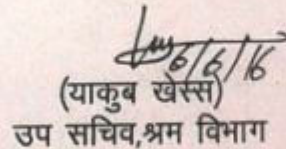 6/6/16
(याकुब खेस्स)
उप सचिव,श्रम विभाग